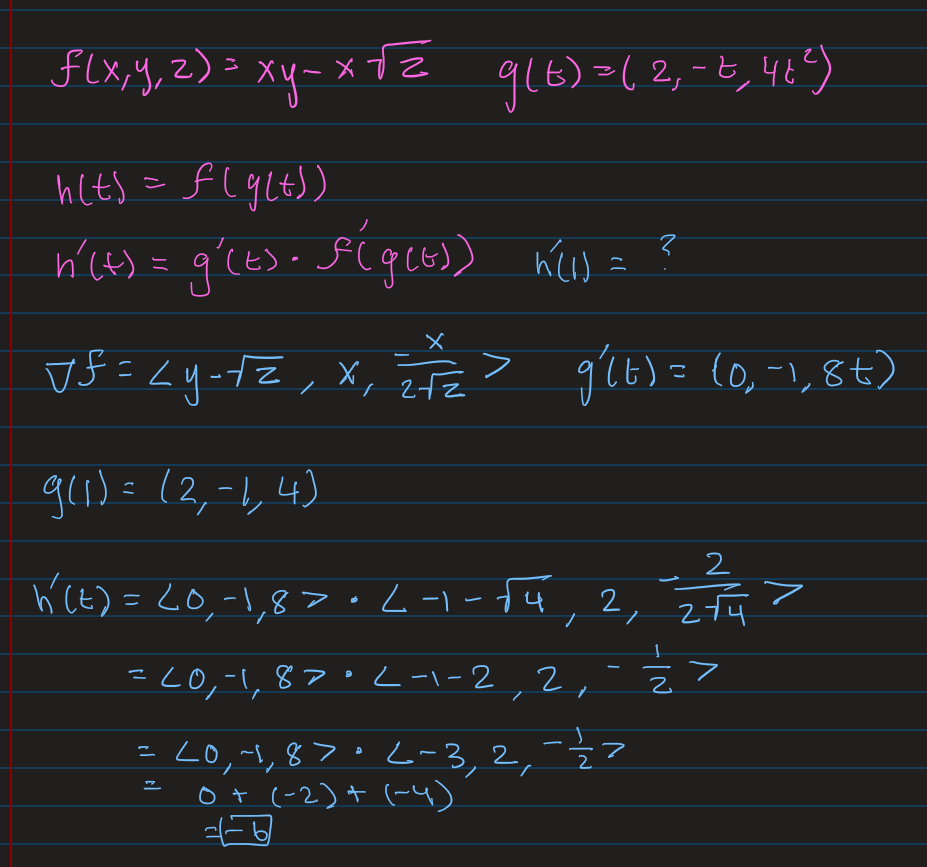 f(x,y,z) = xy - x√z    g(t) = (2, -t, 4t²)
h(t) = f(g(t))
h'(t) = g'(t) · f'(g(t))    h'(1) = ?
∇f = <y-√z, x, -x/(2√z)>    g'(t) = (0, -1, 8t)
g(1) = (2, -1, 4)
h'(t) = <0, -1, 8> · <-1-√4, 2, -2/(2√4)>
= <0, -1, 8> · <-1-2, 2, -1/2>
= <0, -1, 8> · <-3, 2, -1/2>
= 0 + (-2) + (-4)
= -6